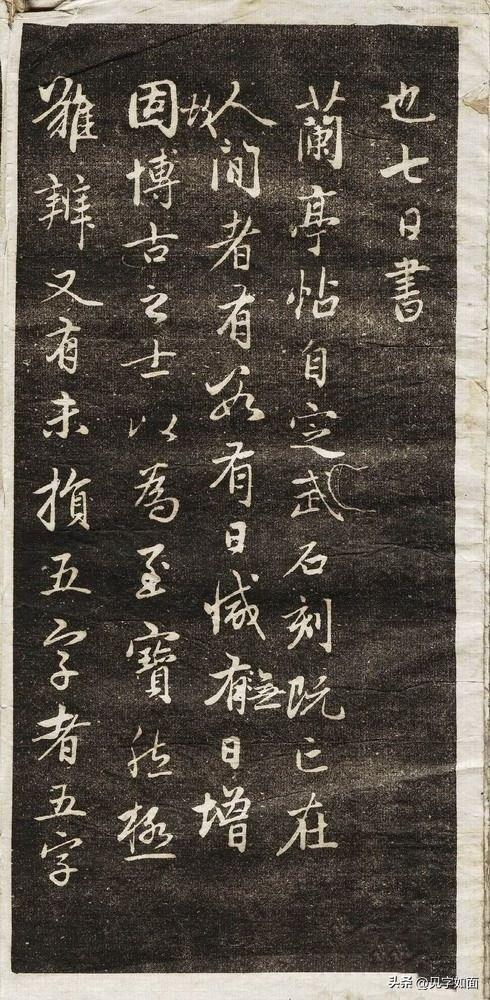 也七日書
蘭亭帖自定武石刻既亡在
人間者有數有日減有無日增
因故博古之士以為至寶然極
難辨又有未損五字者五字
头条 @见字如面